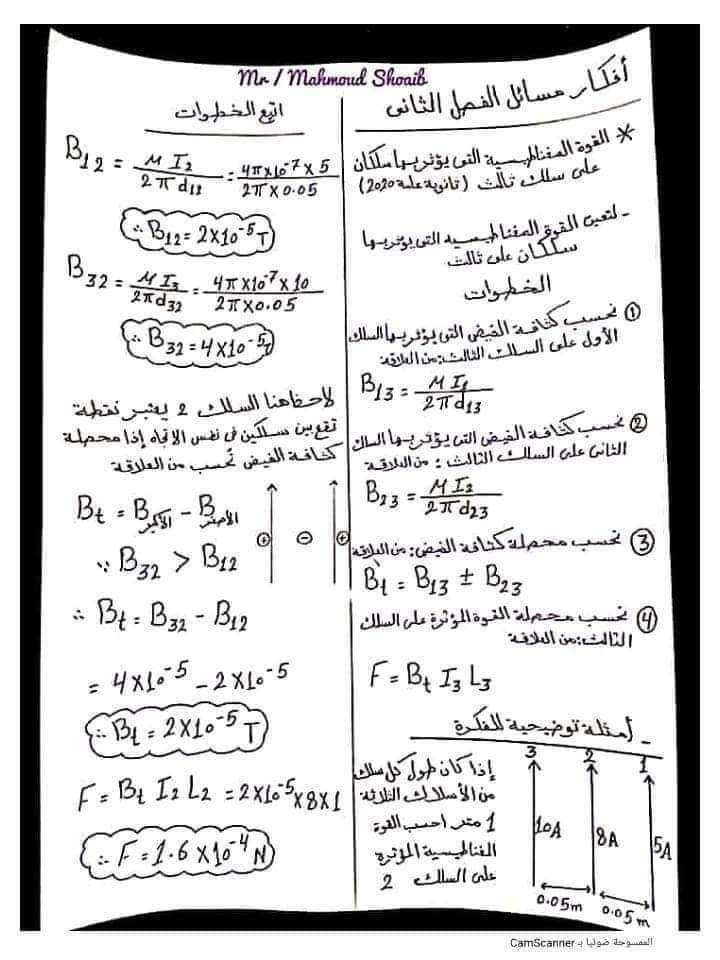 Mr / Mahmoud Shoaib
أفكار مسائل الفصل الثانى
* القوة المغناطيسية التى يؤثر بها سلكان
على سلك ثالث (ثانوية عامة 2020)
- لتعين القوة المغناطيسيه التى يؤثر بها
سلكان على ثالث
الخطوات
① نحسب كثافة الفيض التى يؤثر بها السلك
الأول على السلك الثالث: من العلاقة
B13 = M I1 / 2π d13
② نحسب كثافة الفيض التى يؤثر بها السلك
الثانى على السلك الثالث: من العلاقة
B23 = M I2 / 2π d23
③ نحسب محصلة كثافة الفيض: من العلاقة
Bt = B13 ± B23
④ نحسب محصلة القوة المؤثرة على السلك
الثالث: من العلاقة
F = Bt I3 L3
- أمثلة توضيحية للفكرة
إذا كان طول كل سلك
من الأسلاك الثلاثة
1 متر احسب القوة
المغناطيسية المؤثرة
على السلك 2
3 2 1
10A 8A 5A
0.05m 0.05m
اتبع الخطوات
B12 = M I2 / 2π d12 = 4π×10-7 × 5 / 2π × 0.05
∴ B12 = 2×10-5 T
B32 = M I3 / 2π d32 = 4π×10-7 × 10 / 2π × 0.05
∴ B32 = 4×10-5 T
لاحظ هنا السلك 2 يعتبر نقطة
تقع بين سلكين فى نفس الاتجاه إذا محصلة
كثافة الفيض تُحسب من العلاقة
Bt = B الأكبر - B الأصغر
⊕ ⊖ ⊕
∵ B32 > B12
∴ Bt = B32 - B12
= 4×10-5 - 2×10-5
∴ Bt = 2×10-5 T
F = Bt I2 L2 = 2×10-5 × 8 × 1
∴ F = 1.6 ×10-4 N
الممسوحة ضوئيا بـ CamScanner